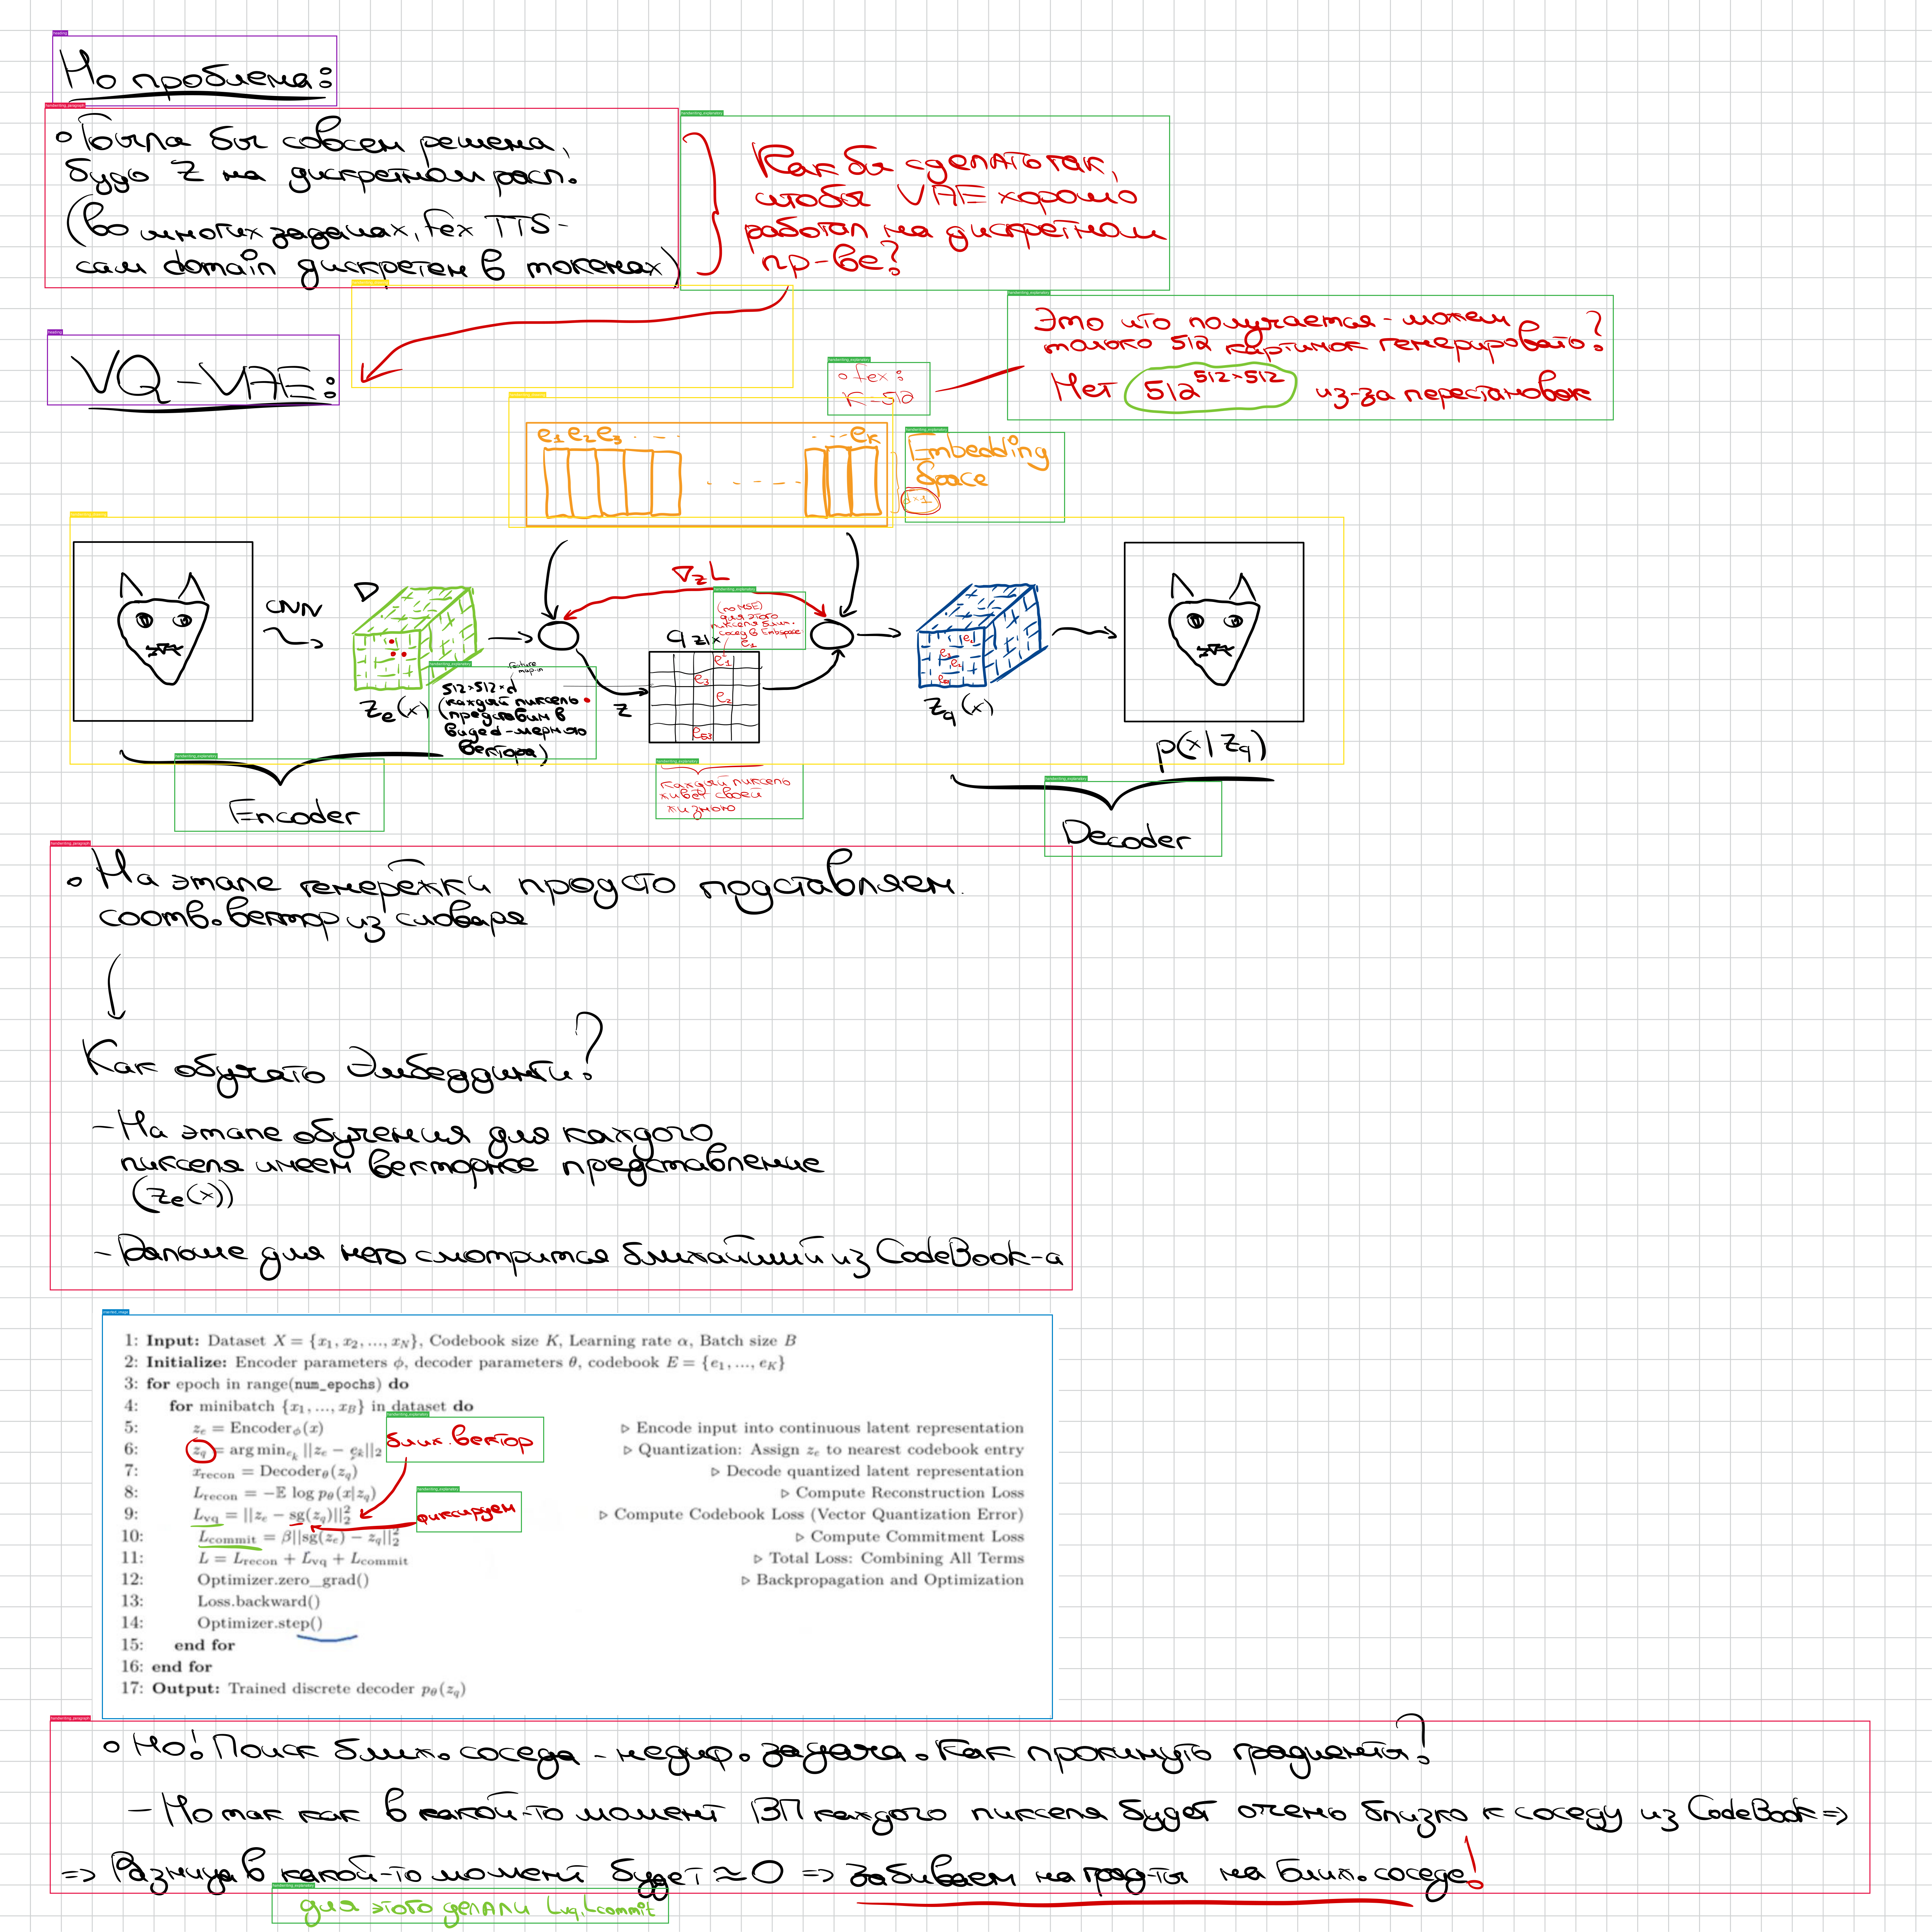 Но проблема:
◦ Была бы совсем решена,
будь z из дискретном расп.
(во многих задачах, fex TTS -
сам domain дискретен в токенах)
Как бы сделать так,
чтобы VAE хорошо
работал на дискретном
пр-ве?
VQ-VAE:
◦ fex:
K-512
Это что получается - можем
только 512 картинок генерировать?
Нет 512^512×512 из-за перестановок
e1 e2 e3 - - - - - - eK
Embedding
Space
d×1
CNN
D
∇zL
(по MSE)
для этого
пикселя ближ.
сосед в Embspace
e1
q z|x
e1
e3
e2
e53
z
feature
map-ы
512×512×d
(каждый пиксель
представим в
виде d-мерного
вектора)
ze(x)
zq(x)
p(x|zq)
Каждый пиксель
живёт своей
жизнью
Encoder
Decoder
◦ На этапе генерёжки просто подставляем
соотв. вектор из словаря
Как обучать Эмбеддинги?
- На этапе обучения для каждого
пикселя имеем векторное представление
(ze(x))
- Дальше для него смотрится ближайший из CodeBook-а
1: Input: Dataset X = {x1, x2, ..., xN}, Codebook size K, Learning rate α, Batch size B
2: Initialize: Encoder parameters ϕ, decoder parameters θ, codebook E = {e1, ..., eK}
3: for epoch in range(num_epochs) do
4: for minibatch {x1, ..., xB} in dataset do
5: ze = Encoderϕ(x) ▷ Encode input into continuous latent representation
6: zq = arg min_ek ||ze − ek||2 ▷ Quantization: Assign ze to nearest codebook entry
ближ. вектор
7: xrecon = Decoderθ(zq) ▷ Decode quantized latent representation
8: Lrecon = −𝔼 log pθ(x|zq) ▷ Compute Reconstruction Loss
9: Lvq = ||ze − sg(zq)||²₂ ▷ Compute Codebook Loss (Vector Quantization Error)
фиксируем
10: Lcommit = β||sg(ze) − zq||²₂ ▷ Compute Commitment Loss
11: L = Lrecon + Lvq + Lcommit ▷ Total Loss: Combining All Terms
12: Optimizer.zero_grad() ▷ Backpropagation and Optimization
13: Loss.backward()
14: Optimizer.step()
15: end for
16: end for
17: Output: Trained discrete decoder pθ(zq)
◦ Но! Поиск ближ. соседа - недиф. задача. Как прокинуть градиенты?
- Но так как в какой-то момент ВП каждого пикселя будет очень близко к соседу из CodeBook =>
=> Разница в какой-то момент будет ≈ 0 => забиваем на град-ты на ближ. соседе!
для этого делали Lvq, Lcommit